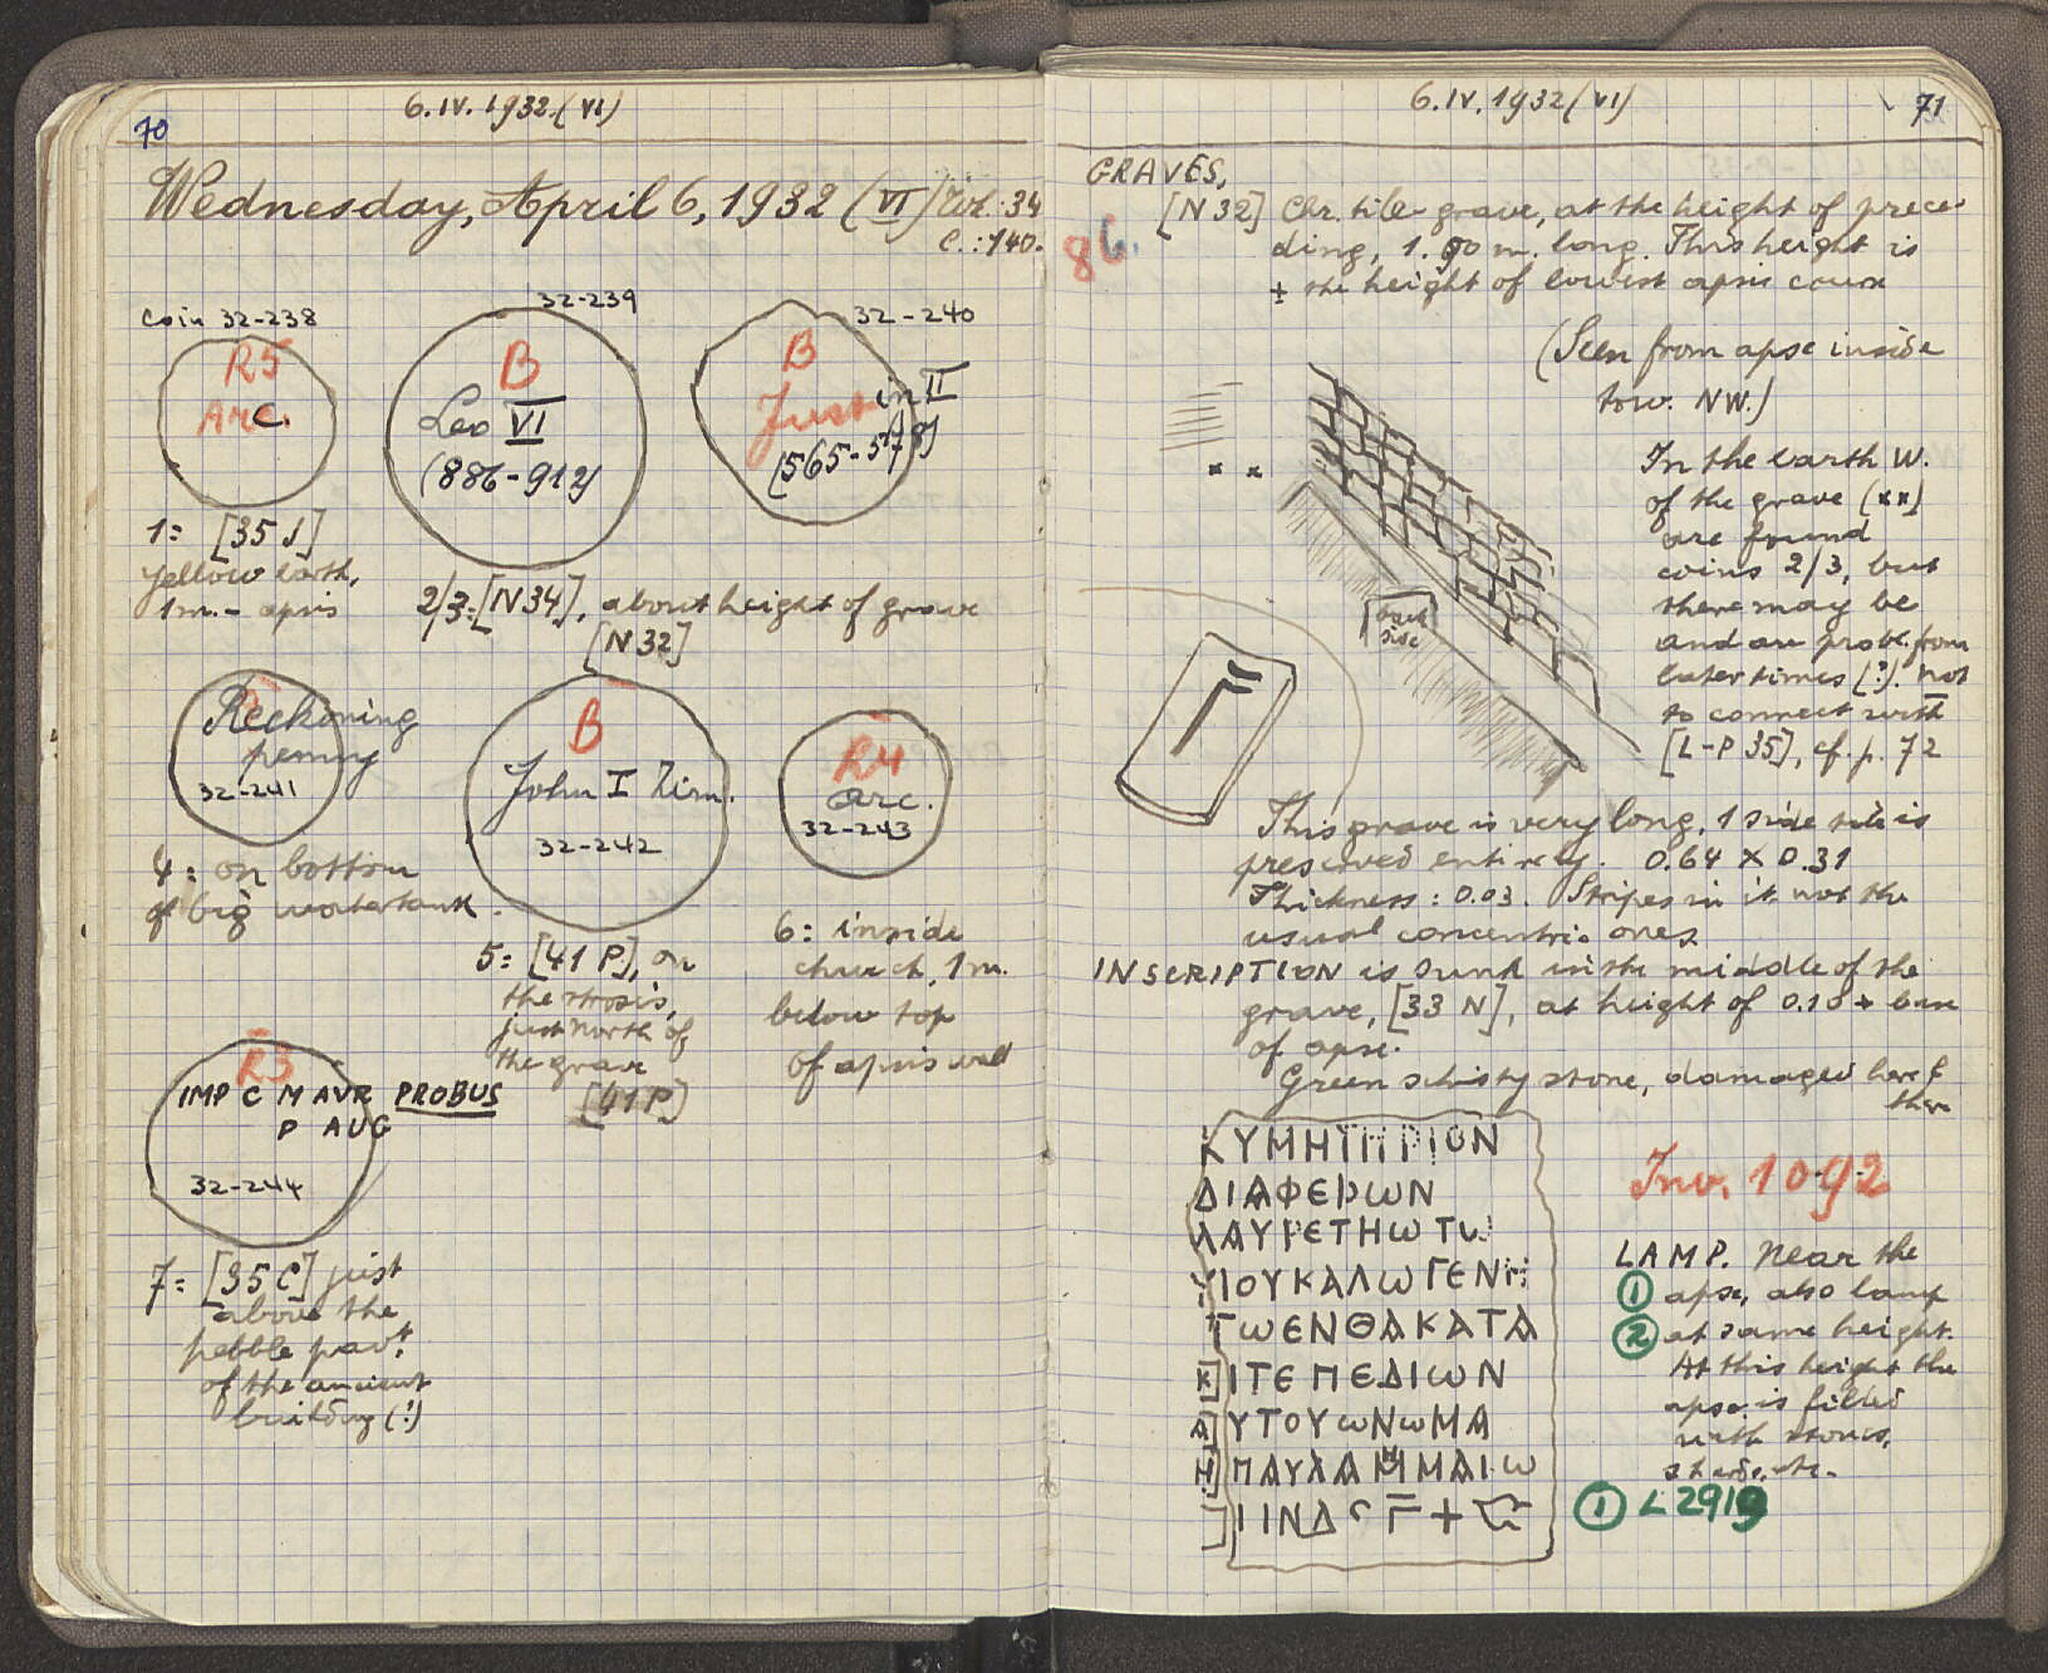 70
6.IV.1932.(VI)
Wednesday, April 6, 1932 (VI)
34
C.:140.
Coin 32-238
R5
Arc.
1= [35 J]
yellow earth,
1m.- apsis
32-239
B
Leo VI
(886-912)
32-240
B
Justin II
(565-578)
2/3=[N34], about height of grave
[N32]
Reckoning
penny
32-241
4: on bottom
of big watertank.
B
John I Zim.
32-242
5= [41 P], on
the strosis,
just north of
the grave
[41 P]
R4
arc.
32-243
6: inside
church, 1m.
below top
of apsis wall
R3
IMP C M AVR PROBUS
P AUG
32-244
7= [35 C] just
above the
pebble pavt.
of the ancient
building (?)
6.IV.1932(VI)
71
GRAVES,
86.
[N32] Chr. tile grave, at the height of prece-
ding, 1.90 m. long. This height is
± the height of lowest apsis course
(Seen from apse inside
tow. NW.)
In the earth W.
of the grave (xx)
are found
coins 2/3, but
there may be
and are prob. from
later times (?). not
to connect with
[L-P 35], cf. p. 72
back
side
This grave is very long, 1 side tile is
preserved entirely. 0.64 x 0.31
Thickness: 0.03. Stripes in it not the
usual concentric ones.
INSCRIPTION is sunk in the middle of the
grave, [33 N], at height of 0.10 + base
of apse.
Green schisty stone, damaged here &
there
ΚΥΜΗΤΗΡΙΟΝ
ΔΙΑΦΕΡωΝ
ΛΑΥΡΕΤΗω Τω
ΥΙΟΥΚΑΛωΓΕΝΗ
ΤωΕΝΘΑΚΑΤΑ
Κ]ΙΤΕ ΠΕΔΙωΝ
Α]ΥΤΟΥωΝωΜΑ
Η]ΠΑΥΛΑΜΜΑΙω
]ΙΙΝΔ
Inv. 1092
LAMP. Near the
① apse, also lamp
② at same height.
At this height the
apse is filled
with stones,
sherds, etc.
① L 2919